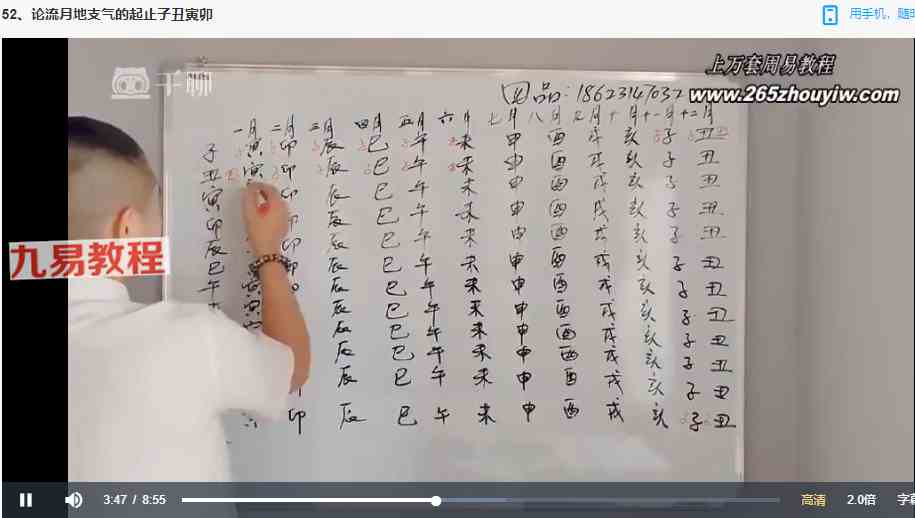 52、论流月地支气的起止子丑寅卯
用手机，随时
千聊
上万套周易教程
www.265zhouyiw.com
品:18623147032
一月 二月 三月 四月 五月 六月 七月 八月 九月 十月 十一月 十二月
子 寅 卯 辰 巳 午 未 申 酉 戌 亥 子 丑
丑 寅 卯 辰 巳 午 未 申 酉 戌 亥 子 丑
寅 卯 辰 巳 午 未 申 酉 戌 亥 子 丑
卯 辰 巳 午 未 申 酉 戌 亥 子 丑
辰 卯 辰 巳 午 未 申 酉 戌 亥 子 丑
巳 辰 巳 午 未 申 酉 戌 亥 子 丑
午 辰 巳 午 未 申 酉 戌 亥 子 丑
寅 辰 巳 午 未 申 酉 戌 亥 子 丑
辰 巳 午 未 申 酉 戌 亥 子 丑
辰 巳 午 未 申 酉 戌 亥 子 丑
辰 巳 午 未 申 酉 戌 亥 子 丑
卯 辰 巳 午 未 申 酉 戌 亥 子 丑
九易教程
3:47 / 8:55
高清
2.0倍
字幕